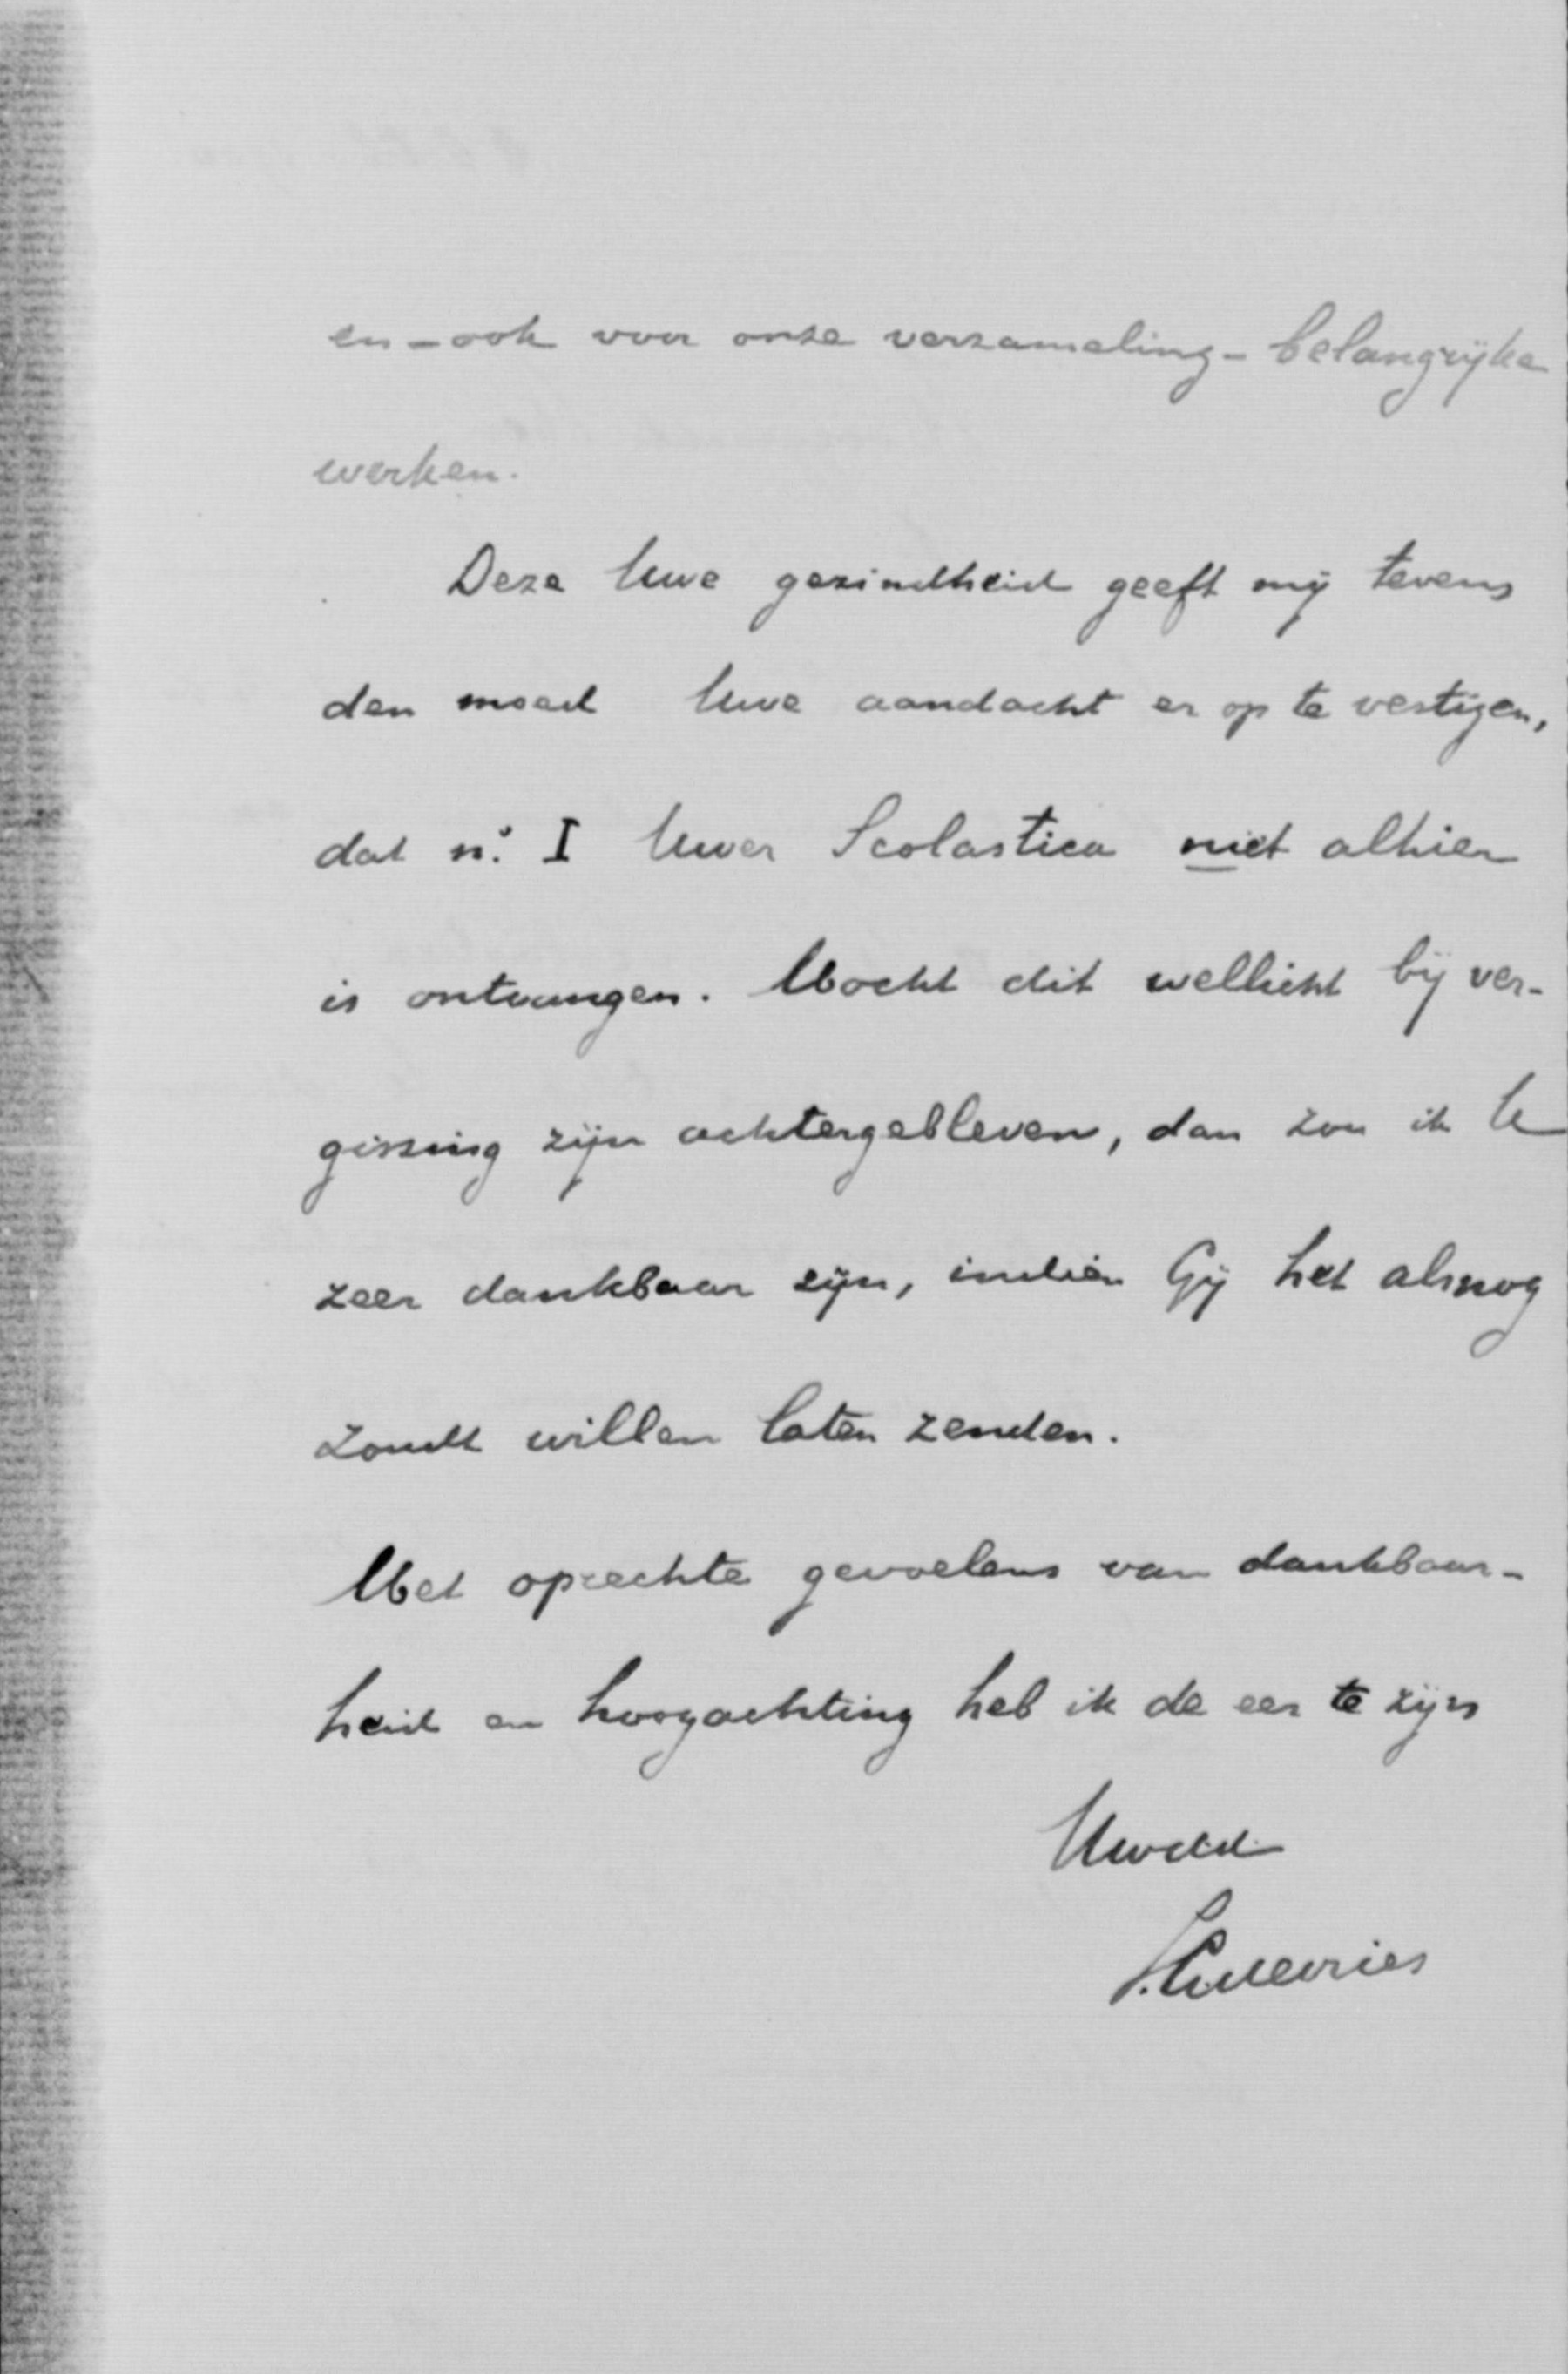 en – ook voor onze verzameling – belangrijke
werken.
Deze Uwe gezindheid geeft mij tevens
den moed Uwe aandacht er op te vestigen,
dat no. I Uwer Scolastica niet alhier
is ontvangen. Mocht dit wellicht bij ver-
gissing zijn achtergebleven, dan zou ik U
zeer dankbaar zijn, indien Gij het alsnog
zoudt willen laten zenden.
Met oprechte gevoelens van dankbaar-
heid en hoogachting heb ik de eer te zijn
Uwdd.